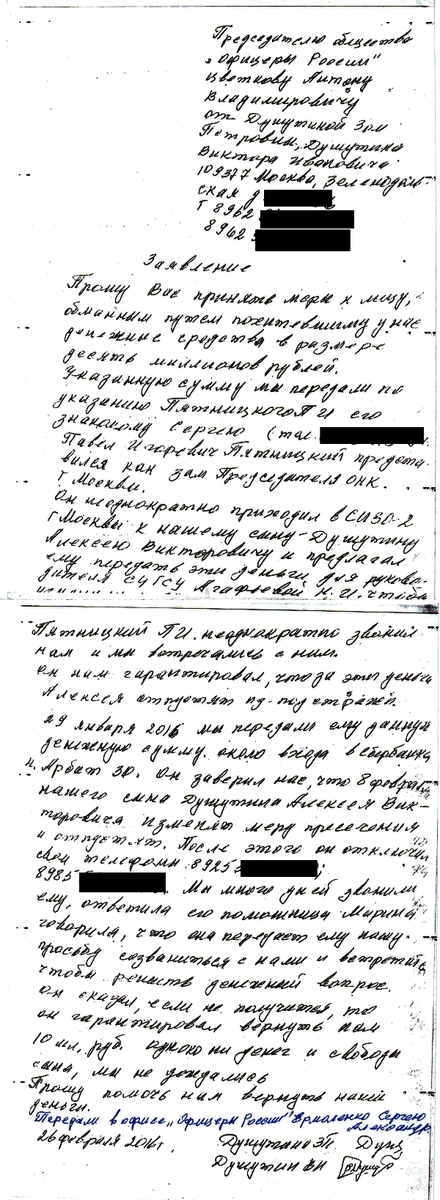 Председателю общества
„Офицеры России"
Цветкову Антону
Владимировичу
от Душутиной Зои
Петровны, Душутина
Виктора Ивановича
109377 Москва, Зеленодоль-
ская д
Т 8962
8962
Заявление
Прошу Вас принять меры к лицу,
обманным путем похитевшиму у нас
денежные средства в размере
десять миллионов рублей.
Указанную сумму мы передали по
указанию Пятницкого П И его
знакомому Сергею (тел.
Павел Игоревич Пятницкий предста
вился как зам Председателя ОНК.
г Москвы.
Он неоднократно приходил в СИЗО-2
г Москвы к нашему сыну-Душутину
Алексею Викторовичу и предлагал
ему передать эти деньги для руково-
дителя СУ ГСУ Агафьевой Н.И. чтобы
Пятницкий П.И. неоднократно звонил
нам и мы встречались с ним.
Он нам гарантировал, что за эти деньги
Алексея отпустят из-под стражи.
29 января 2016 мы передали ему данную
денежную сумму около входа в Сбербанка
Н. Арбат 30. Он заверил нас, что 8 феврал
нашего сына Душутина Алексея Вик-
торовича изменят меру пресечения
и отпустят. После этого он отключил
свои телефоны 8925
8985 . Мы много дней звонили
ему, ответила его помощница Марина
говорила, что она передаст ему нашу
просьбу созвониться с нами и встретит
чтобы решить денежный вопрос.
Он сказал, если не получится, то
он гарантировал вернуть нам
10 мл. руб. однако ни денег и свободы
сына, мы не дождались
Прошу помочь нам вернуть наши
деньги.
Передали в офисе „Офицеры России" Ермоленко Сергею
Александр
26 февраля 2016 г. Душутина З П
Душутин В И